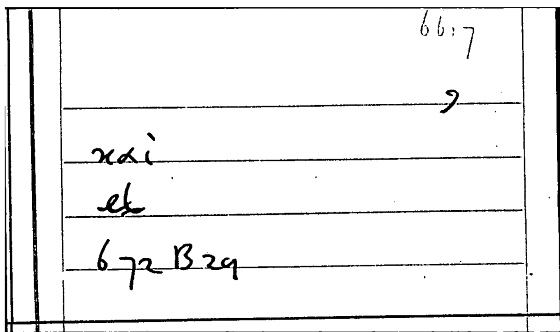 66:7
,
xxi
et
672 B29